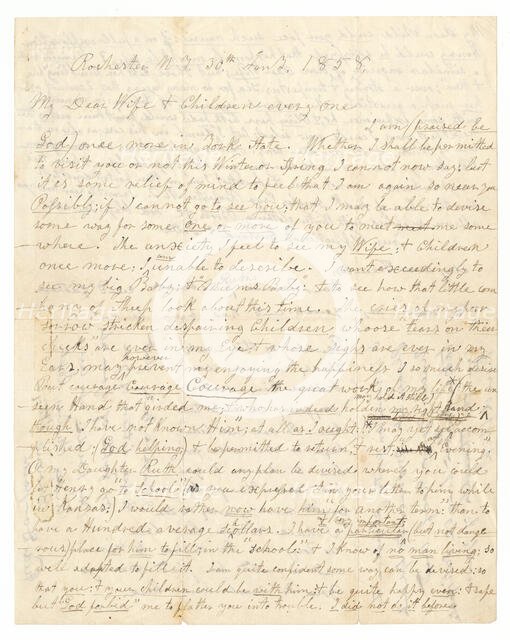 Rochester N Y. 30th Jan'y, 1858.
My Dear Wife & Children every one
I am (praised be
God) once more in York State. Whether I shall be permitted
to visit you or not this Winter or Spring I cannot now say; but
it is some relief of mind to feel that I am again so near you
Possibly; if I cannot go to see you; that I may be able to devise
some way for some one or more of you to meet me some
where. The anxiety I feel to see my Wife; & Children
once more; I am unable to describe. I want exceedingly to
see my big Baby; & Ruths Baby: & to see how that little com
pany of Sheep look about this time. The cries of my poor
sorrow stricken despairing Children whoose "tears on their
cheeks" are ever in my Eye; & whose sighs are ever in my
Ears; may however prevent my enjoying the happiness I so much desire
But courage Courage Courage the great work of my life (the un
seen Hand that "girded me; & who has indeed holden my right hand may hold it still;
though I have not known Him"; at all as I ought:) I may yet see accom
plished; (God helping;) & be permitted to return, & "rest at Evening."
O my Daughter Ruth could any plan be devised whereby you could
let Henry go "to School" (as you expressed it in your letter to him while
in Kansas;) I would rather now have him "for another term": than to
have a Hundred average Schollars. I have a particular & very important; (but not dange
rous) place for him to fill; in the "school": & I know of no man living; so
well adapted to fill it. I am quite confident some way can be devised; so
that you; & your children could be with him; & be quite happy even: & safe
but "God forbid" me to flatter you into trouble. I did not do it before.